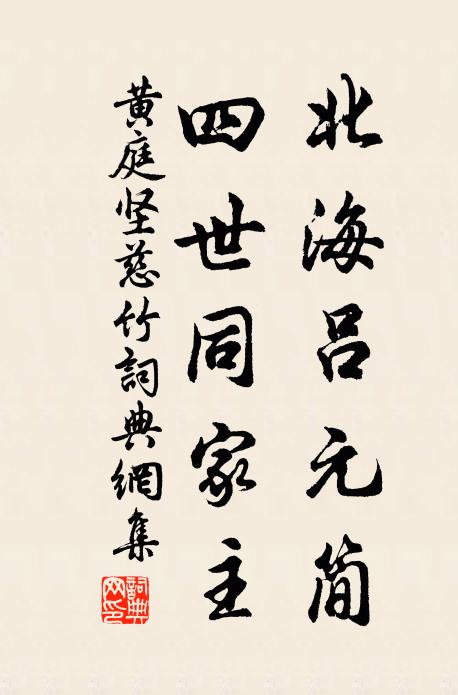 北海吕元简
四世同家主
黄庭坚慈竹詞典網集
詞典
网印